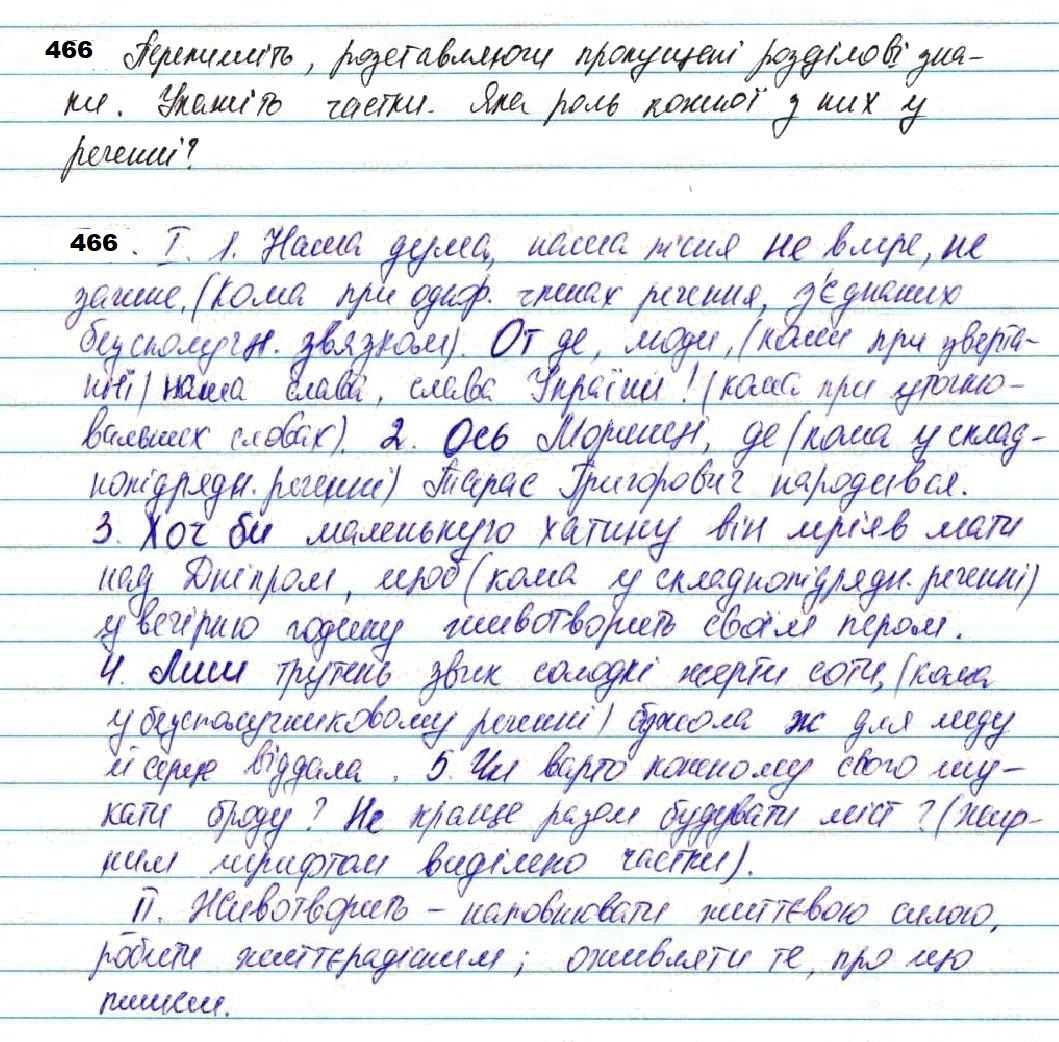 466 Перепишіть, розставляючи пропущені розділові зна-
ки. Укажіть частки. Яка роль кожної з них у
реченні?
466. I. 1. Наша дума, наша пісня не вмре, не
загине, (кома при однор. членах речення, з'єднаних
безсполучн. зв'язком). От де, люди, (коми при зверта-
нні) наша слава, слава України! (кома при уточню-
вальних словах). 2. Ось Моринці, де (кома у склад-
нопідрядн. реченні) Тарас Григорович народився.
3. Хоч би маленьку хатину він мріяв мати
над Дніпром, щоб (кома у складнопідрядн. реченні)
у вечірню годину животворить своїм пером.
4. Лиш трутень звик солодкі жерти соти, (кома
у безсполучниковому реченні) бджола ж для меду
й серце віддала. 5. Чи варто кожному свого шу-
кати броду? Не краще разом будувати міст? (Жир-
ним шрифтом виділено частки).
II. Животворить – наповнювати життєвою силою,
робити життєрадісним; оживляти те, про що
пишеш.